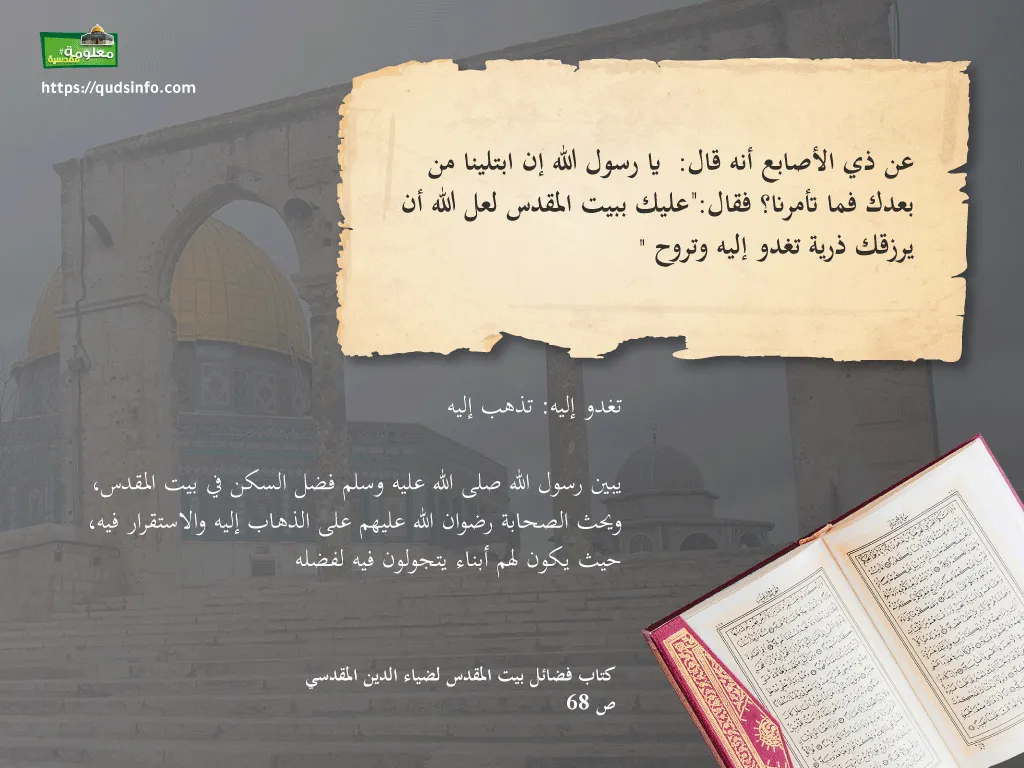 #معلومة
مقدسية
https://qudsinfo.com
عن ذي الأصابع أنه قال: يا رسول الله إن ابتلينا من
بعدك فما تأمرنا؟ فقال:"عليك ببيت المقدس لعل الله أن
يرزقك ذرية تغدو إليه وتروح "
تغدو إليه: تذهب إليه
يبين رسول الله صلى الله عليه وسلم فضل السكن في بيت المقدس،
ويحث الصحابة رضوان الله عليهم على الذهاب إليه والاستقرار فيه،
حيث يكون لهم أبناء يتجولون فيه لفضله
كتاب فضائل بيت المقدس لضياء الدين المقدسي
ص 68